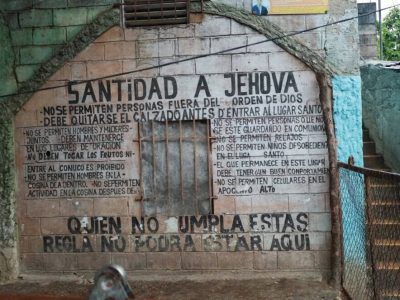 SANTIDAD A JEHOVA
-NO SE PERMITEN PERSONAS FUERA DEL ORDEN DE DIOS
DEBE QUITARSE EL CALZADO ANTES D'ENTRAR AL LUGAR SANTO
-NO SE PERMITEN HOMBRES Y MUJERES
JUNTOS - DEBEN MANTENERCE
EN LOS LUGARES DE ORACION
NO DEBEN TOCAR LOS FRUTOS NI
ENTRE AL CONUCO ES PROIBIDO
-NO SE PERMITEN HOMBRES EN LA
COSINA DEA DENTRO. -NO SE PERMITEN
ACTIVIDAD EN LA COSINA DESPUES DE
-NO SE PERMITEN PERSONAS QUE NO
SE ESTE GUARDANDO EN COMUNION
-NO SE PERMITEN RELAJOS
-NO SE PERMITEN NIÑOS D'SOBEDIENT
EN EL LUGA SANTO
-EL QUE PERMANECE EN ESTE LUGAR
DEBE TENER UN BUEN COMPORTAMIEN
-NO SE PERMITEN CELULARES EN EL
APOCENTO ALTO
QUIEN NO CUMPLA ESTAS
REGLA NO PODRA ESTAR AQUI